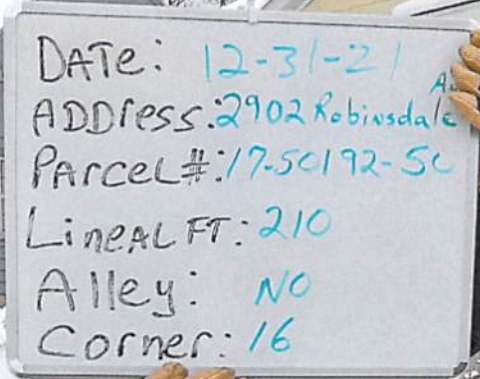 DATe: 12-31-21
ADDress: 2902 Robinsdale
PArceL#: 17-50192-50
LineAL FT: 210
Alley: NO
Corner: 16